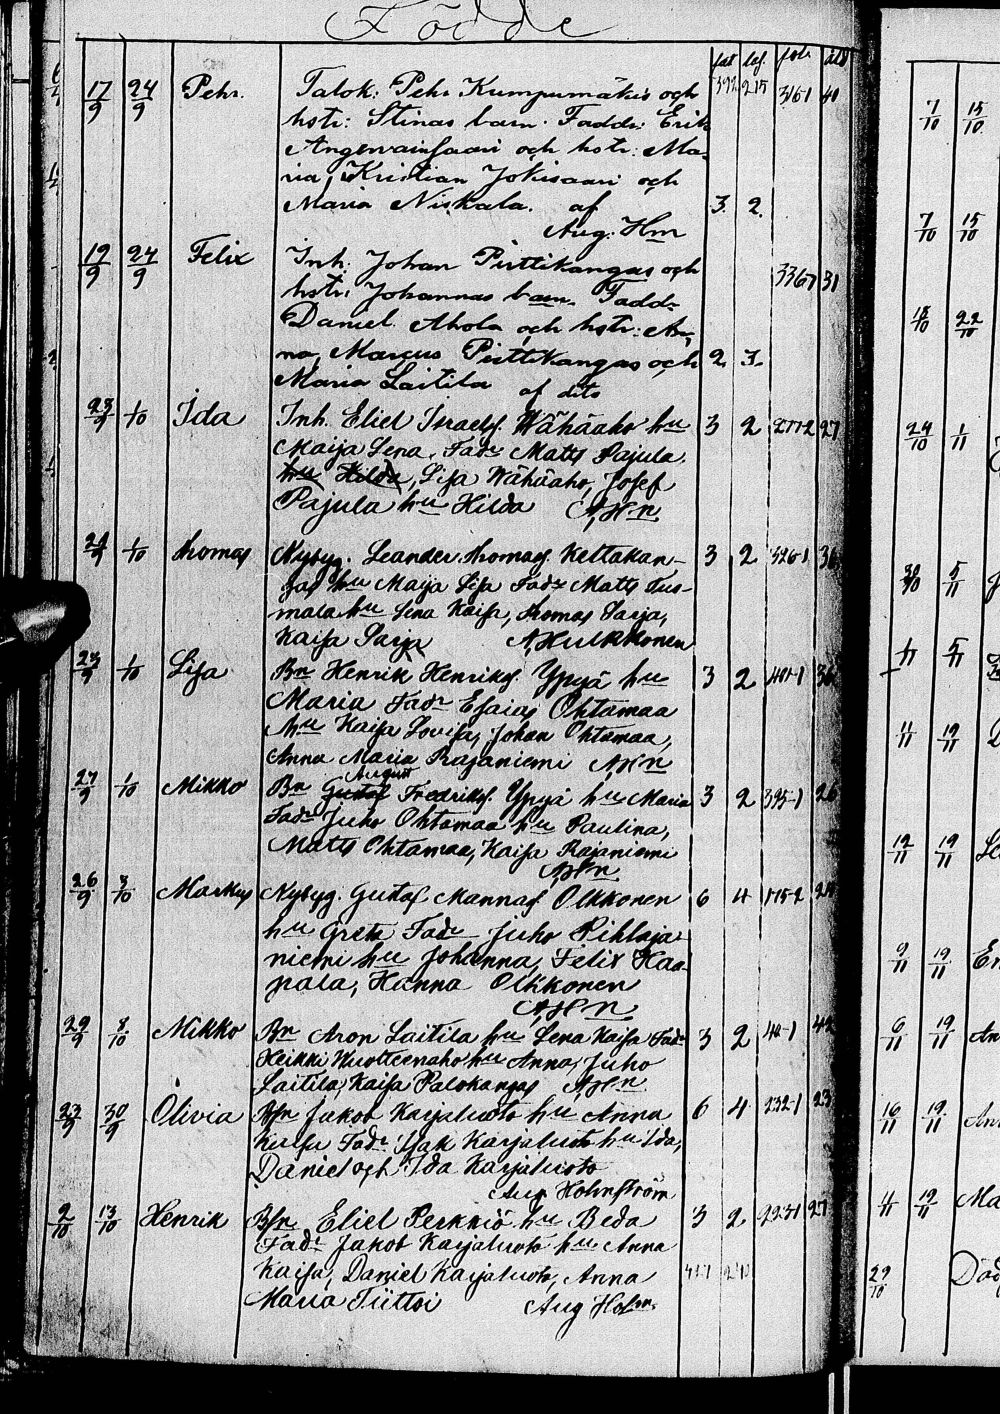 Födde
17/9 24/9 Pehr. Talok: Pehr Kumpumäkis och 392 215 316-1 40
hstr: Stinas barn. Faddr: Erik
Angervainsaari och hstr: Ma-
ria, Kristian Jokisaari och
Maria Niskala. af 3. 2.
Aug. Hm
19/9 24/9 Felix Inh: Johan Pirttikangas och 336-1 31
hstr: Johannas barn. Faddr
Daniel Ahola och hstr: An-
na, Marcus Pirttikangas och 2. 3.
Maria Laitila af dito
23/9 1/10 Ida Inh. Eliel Israels. Wähäaho hu 3 2 277-2 27
Maija Lena. Fadr Matts Pajula
hu Hilda, Lisa Wähäaho, Josef
Pajula hu Hilda AHn
24/9 1/10 Thomas Nybyg. Leander Thomas. Keltakan- 3 2 326-1 36
gas hu Maija Lisa Fadr Matts Tus-
mala hu Lena Kaisa, Thomas Sarja,
Kaisa Sarja AHulkkonen
23/9 1/10 Lisa Bn Henrik Henriks. Yppä hu 3 2 401-1 36
Maria Fadr Esaias Ohtamaa
hu Kaisa Lovisa, Johan Ohtamaa,
Anna Maria Rajaniemi AHn
August
27/9 1/10 Mikko Bn Gustaf Fredriks. Yppä hu Maria 3 2 395-1 26
Fadr Juho Ohtamaa hu Paulina,
Matts Ohtamaa, Kaisa Rajaniemi
AHn
26/9 3/10 Markus Nybyg. Gustaf Mannas Olkkonen 6 4 175-2 24
hu Greta Fadr Juho Pihlaja-
niemi hu Johanna, Felix Haa-
pala, Hanna Olkkonen
AHn
29/9 8/10 Mikko Bn Aron Laitila hu Lena Kaisa Fadr 3 2 44-1 42
Heikki Wuotteenaho hu Anna, Juho
Laitila, Kaisa Palokangas AHn
22/9 30/9 Olivia Bsn Jakob Karjaluoto hu Anna 6 4 232-1 23
Kaisa Fadr Isak Karjaluoto hu Ida,
Daniel och Ida Karjaluoto
Aug Holmström
2/10 13/10 Henrik Bsn Eliel Perkkiö hu Beda 3 2 223-1 27
Fadr Jakob Karjaluoto hu Anna
Kaisa, Daniel Karjaluoto, Anna
Maria Tiittoi Aug Holm.
7/10 15/10
7/10 15/10
18/10 22/10
24/10 1/11
30/10 5/11
1/11 5/11
4/11 12/11
12/11 19/11
9/11 19/11 En
6/11 19/11 An
16/11 19/11 An
4/11 19/11 Ma
29/10 Död